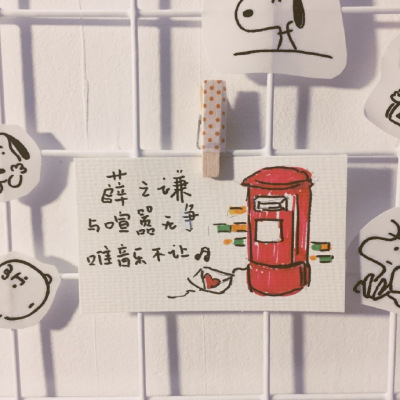 薛之谦
与喧嚣无争
唯音乐不让